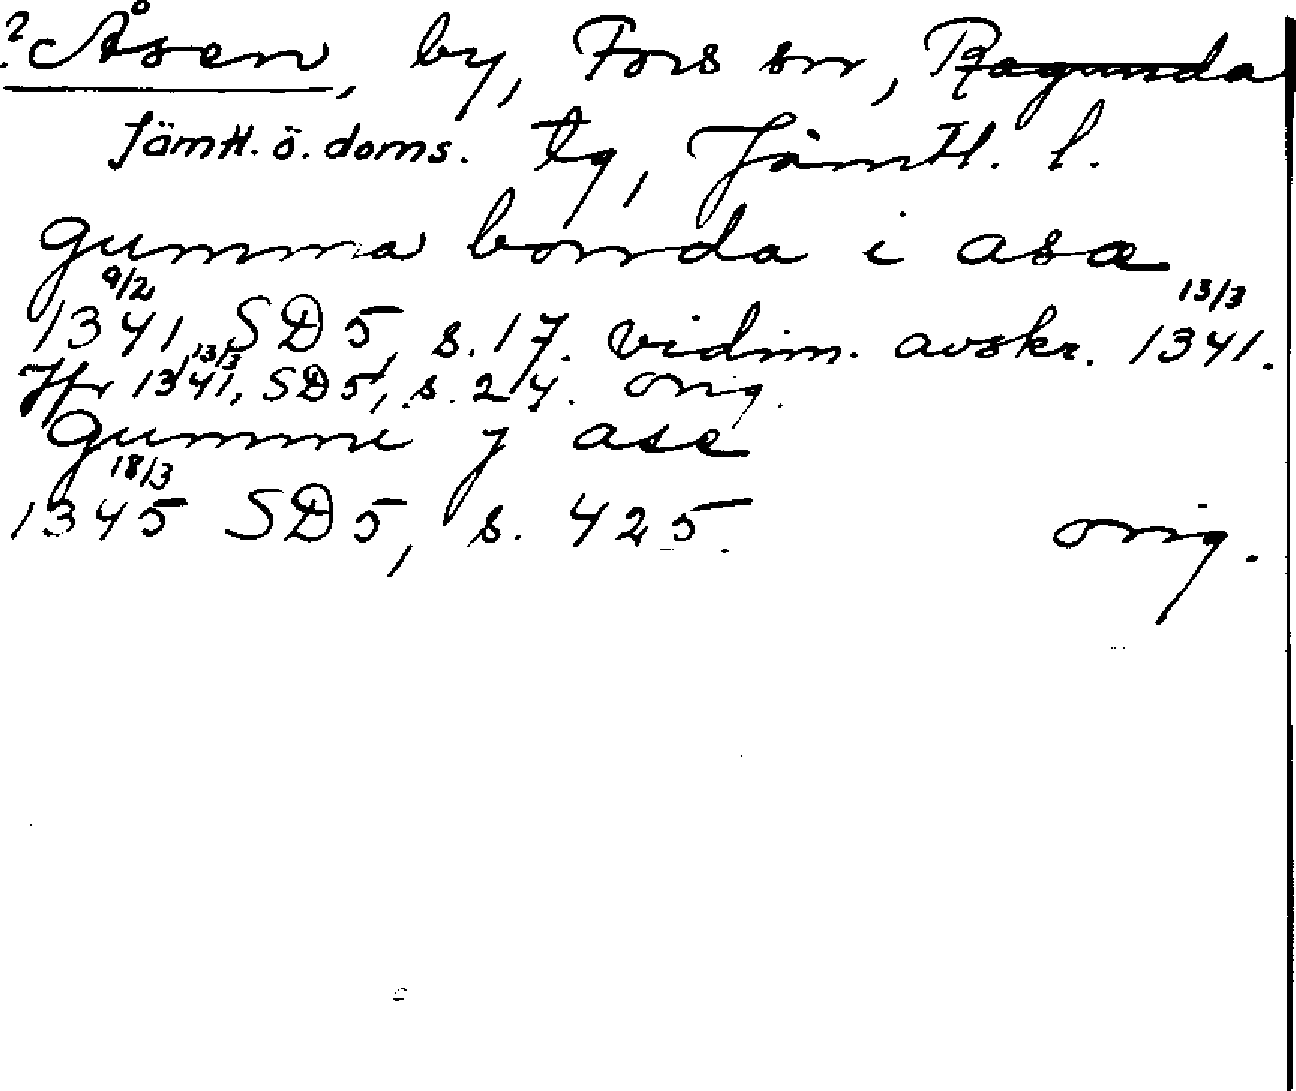 ? Åsen, by, Fors sn, Ragunda
Jämtl. ö. doms. tg, Jämtl. l.
gumma bonda i asæ
1341 9/2 SD 5, s. 17. vidim. avskr. 1341 13/3.
Jfr 1341 13/3, SD 5, s. 24. orig.
gumme j ase
1345 18/3 SD 5, s. 425. orig.